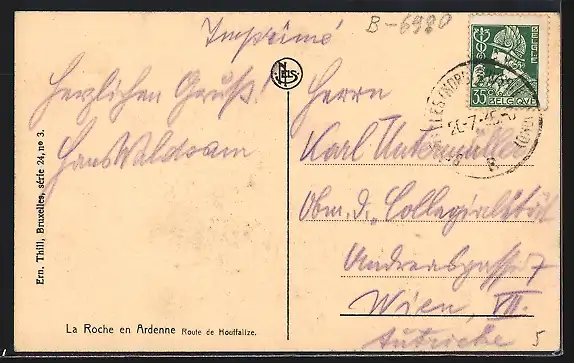 Imprimé
B-6980
Herzlichen Gruß!
Hans Waldsam
NELS
BELGIE
35 BELGIQUE
Herrn
Karl Untermüller
Obm. d. „Collegialität"
Andreasgasse 7
Wien, VII.
Autriche
5
Ern. Thill, Bruxelles, série 24, no 3.
La Roche en Ardenne Route de Houffalize.